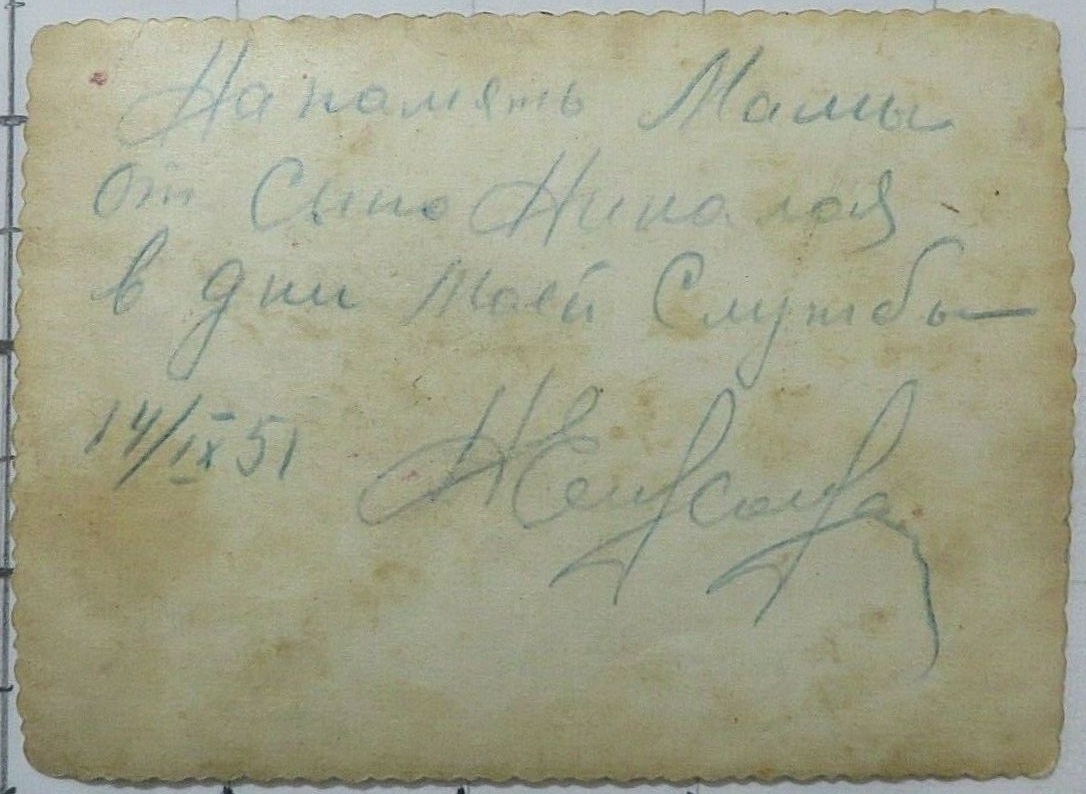 На память Мамы
От Сына Николая
в дни моей Службы
14/IX 51